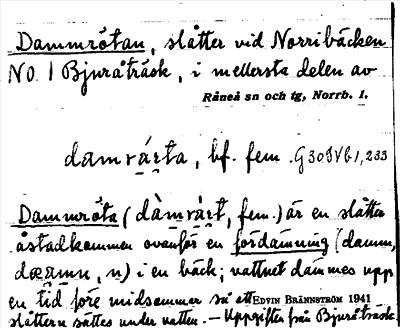 Dammrötan, slåtter vid Norribäcken
NO. 1 Bjuråträsk, i mellersta delen av
Råneå sn och tg, Norrb. l.
damrárta, bf. fem. G 308 Vb 1, 233
Dammröta (dàmrárt, fem.) är en slåtter
åstadkommen ovanför en fördämning (damm,
n) i en bäck; vattnet dämmes upp
en tid före midsommar så att EDVIN BRÄNNSTRÖM 1941
slåttern sättes under vatten. — Uppgifter från Bjuråträsk.